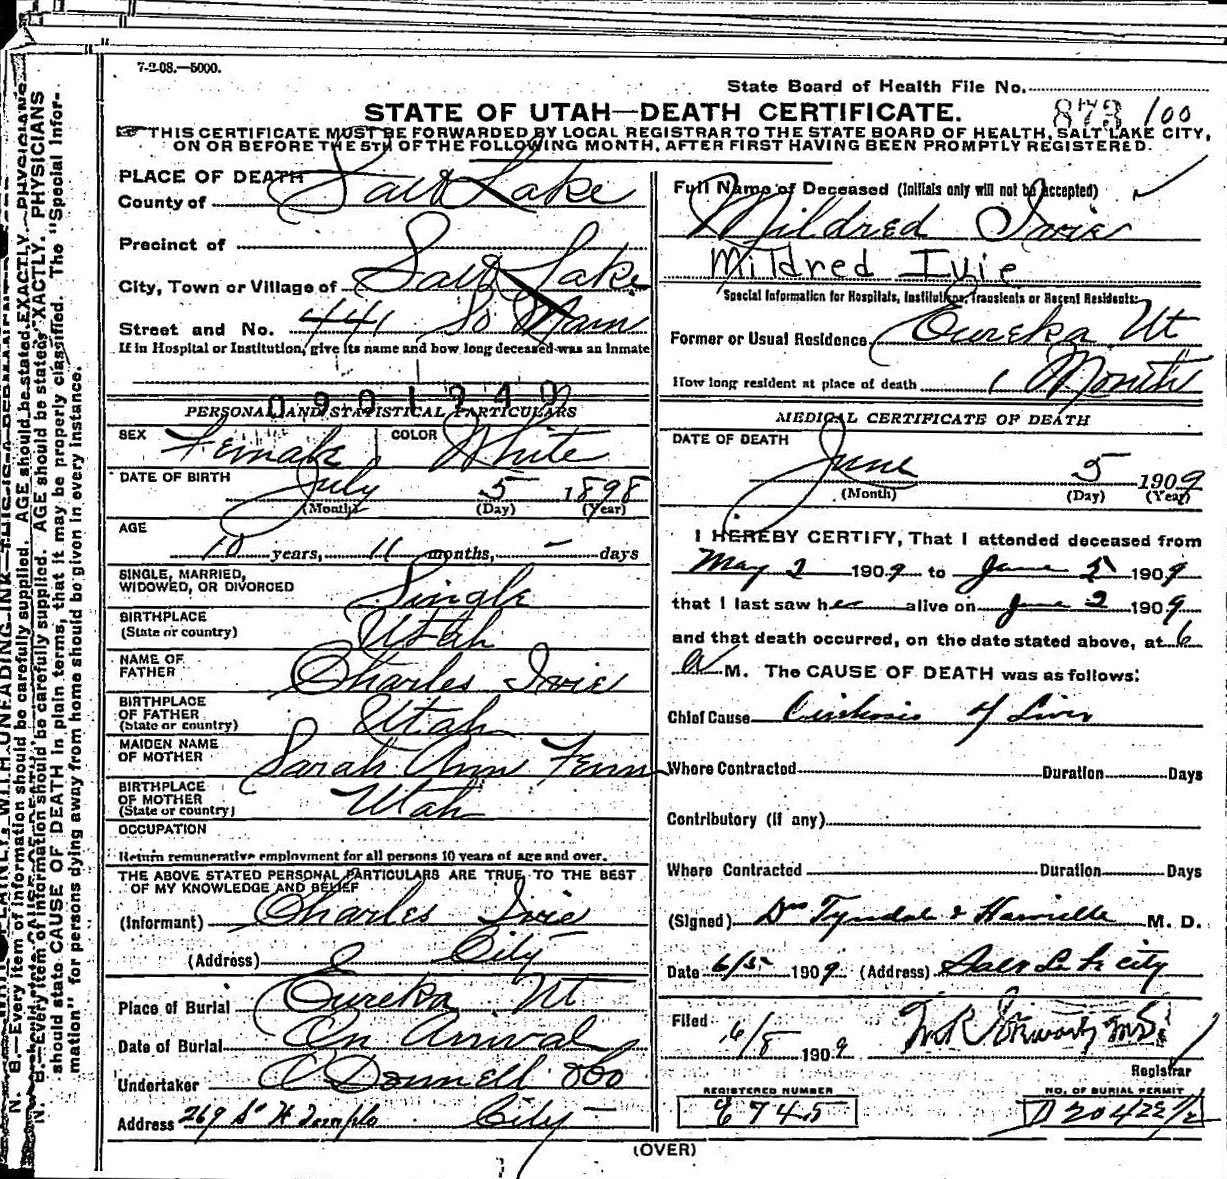 7-2-08.—5000.
State Board of Health File No.
873 100
STATE OF UTAH—DEATH CERTIFICATE.
THIS CERTIFICATE MUST BE FORWARDED BY LOCAL REGISTRAR TO THE STATE BOARD OF HEALTH, SALT LAKE CITY,
ON OR BEFORE THE 5TH OF THE FOLLOWING MONTH, AFTER FIRST HAVING BEEN PROMPTLY REGISTERED.
PLACE OF DEATH
County of Salt Lake
Precinct of
City, Town or Village of Salt Lake
Street and No. 441 So Main
If in Hospital or Institution, give its name and how long deceased was an inmate
0901240
PERSONAL AND STATISTICAL PARTICULARS
SEX Female COLOR White
DATE OF BIRTH July 5 1898
(Month) (Day) (Year)
AGE
10 years, 11 months, - days
SINGLE, MARRIED,
WIDOWED, OR DIVORCED Single
BIRTHPLACE
(State or country) Utah
NAME OF
FATHER Charles Ivie
BIRTHPLACE
OF FATHER
(State or country) Utah
MAIDEN NAME
OF MOTHER Sarah Ann Fenn
BIRTHPLACE
OF MOTHER
(State or country) Utah
OCCUPATION
Return remunerative employment for all persons 10 years of age and over.
THE ABOVE STATED PERSONAL PARTICULARS ARE TRUE TO THE BEST
OF MY KNOWLEDGE AND BELIEF
(Informant) Charles Ivie
(Address) City
Place of Burial Eureka Ut
Date of Burial On Arrival
Undertaker O'Donnell & Co
Address 269 So W Temple City
Full Name of Deceased (Initials only will not be accepted)
Mildred Ivie
Mildred Ivie
Special Information for Hospitals, Institutions, Transients or Recent Residents:
Former or Usual Residence Eureka Ut
How long resident at place of death 1 Month
MEDICAL CERTIFICATE OF DEATH
DATE OF DEATH
June 5 1909
(Month) (Day) (Year)
I HEREBY CERTIFY, That I attended deceased from
May 2 1909 to June 5 1909
that I last saw her alive on June 2 1909
and that death occurred, on the date stated above, at 6
A M. The CAUSE OF DEATH was as follows:
Chief Cause Cirrhosis of Liver
Where Contracted Duration Days
Contributory (if any)
Where Contracted Duration Days
(Signed) Drs Tyndale & M. D.
Date 6/5 1909 (Address) Salt Lake city
Filed 6/8 1909
Registrar
REGISTERED NUMBER
NO. OF BURIAL PERMIT
6745
D 20422 1/2
(OVER)
N. B.—Every item of information should be carefully supplied. AGE should be stated EXACTLY. PHYSICIANS
should state CAUSE OF DEATH in plain terms, that it may be properly classified. The "Special Infor-
mation" for persons dying away from home should be given in every instance.